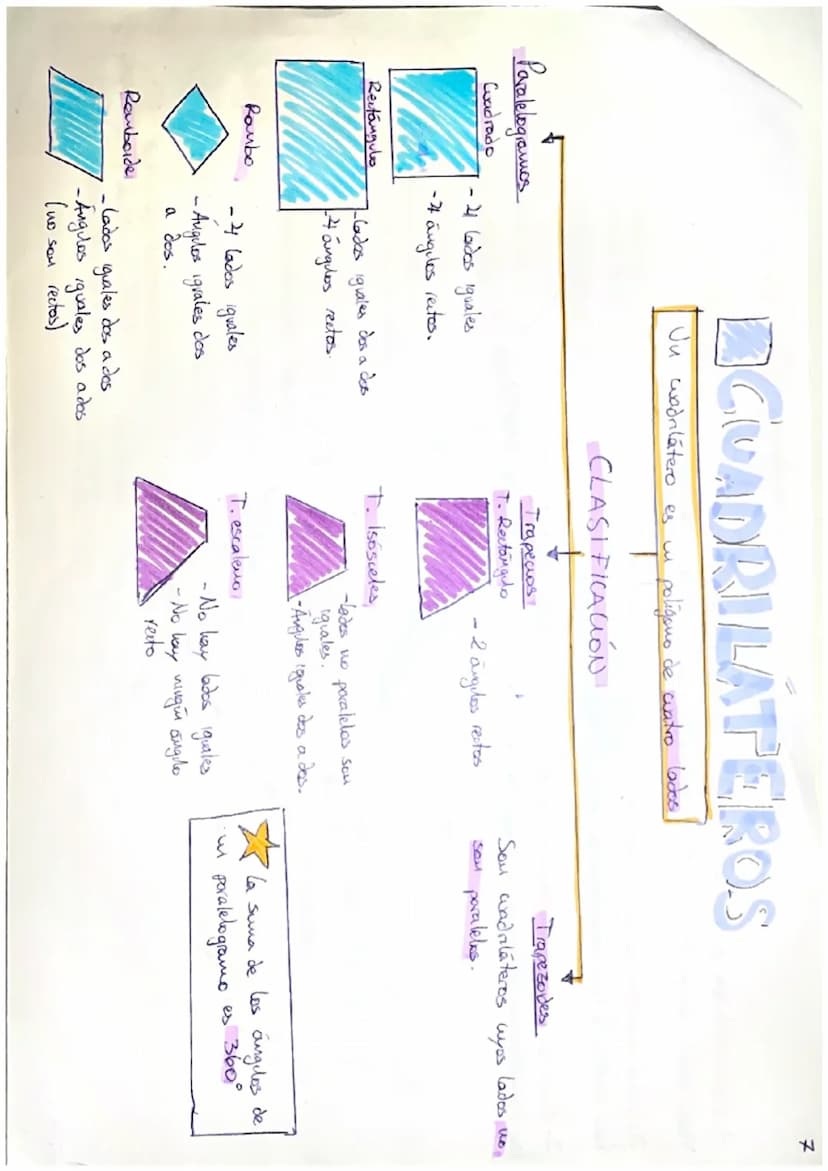 7
CUADRILÁTEROS
Un cuadrilátero es un polígono de cuatro lados
CLASIFICACIÓN
Paralelogramos
Cuadrado
- 4 lados iguales
- 4 ángulos rectos.
Rectángulo
- lados iguales dos a dos
- 4 ángulos rectos.
Rombo
- 4 lados iguales
- Ángulos iguales dos
a dos.
Romboide
- lados iguales dos a dos
- Ángulos iguales dos a dos
(no son rectos)
Trapecios
T. Rectángulo
- 2 ángulos rectos
T. Isósceles
- lados no paralelos son
iguales.
- Ángulos iguales dos a dos.
T. escaleno
- No hay lados iguales
- No hay ningún ángulo
recto
Trapezoides
Son cuadriláteros cuyos lados no
son paralelos.
La suma de los ángulos de
un paralelogramo es 360°